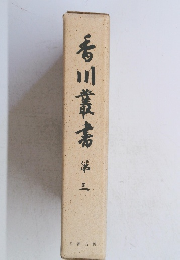 香川叢書
第三